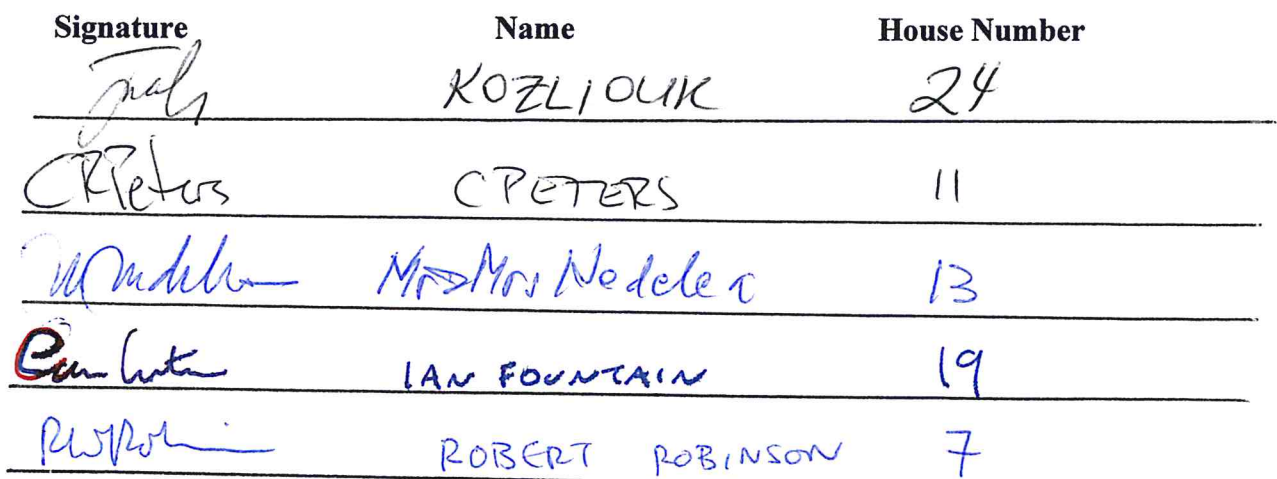 Signature Name House Number
KOZLIOUK 24
CRPeters C PETERS 11
Mr & Mrs 13
IAN FOUNTAIN 19
ROBERT ROBINSON 7